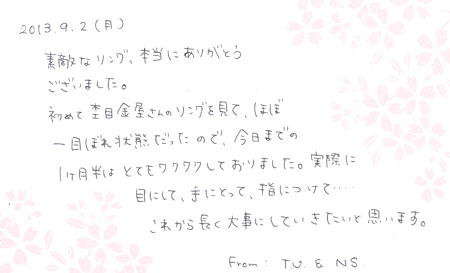 2013.9.2(月)
素敵なリング、本当にありがとう
ございました。
初めて杢目金屋さんのリングを見て、ほぼ
一目ぼれ状態だったので、今日までの
1ヶ月半はとてもワクワクしておりました。実際に
目にして、手にとって、指につけて‥‥‥
これから長く大事にしていきたいと思います。
From: T.U. & N.S.